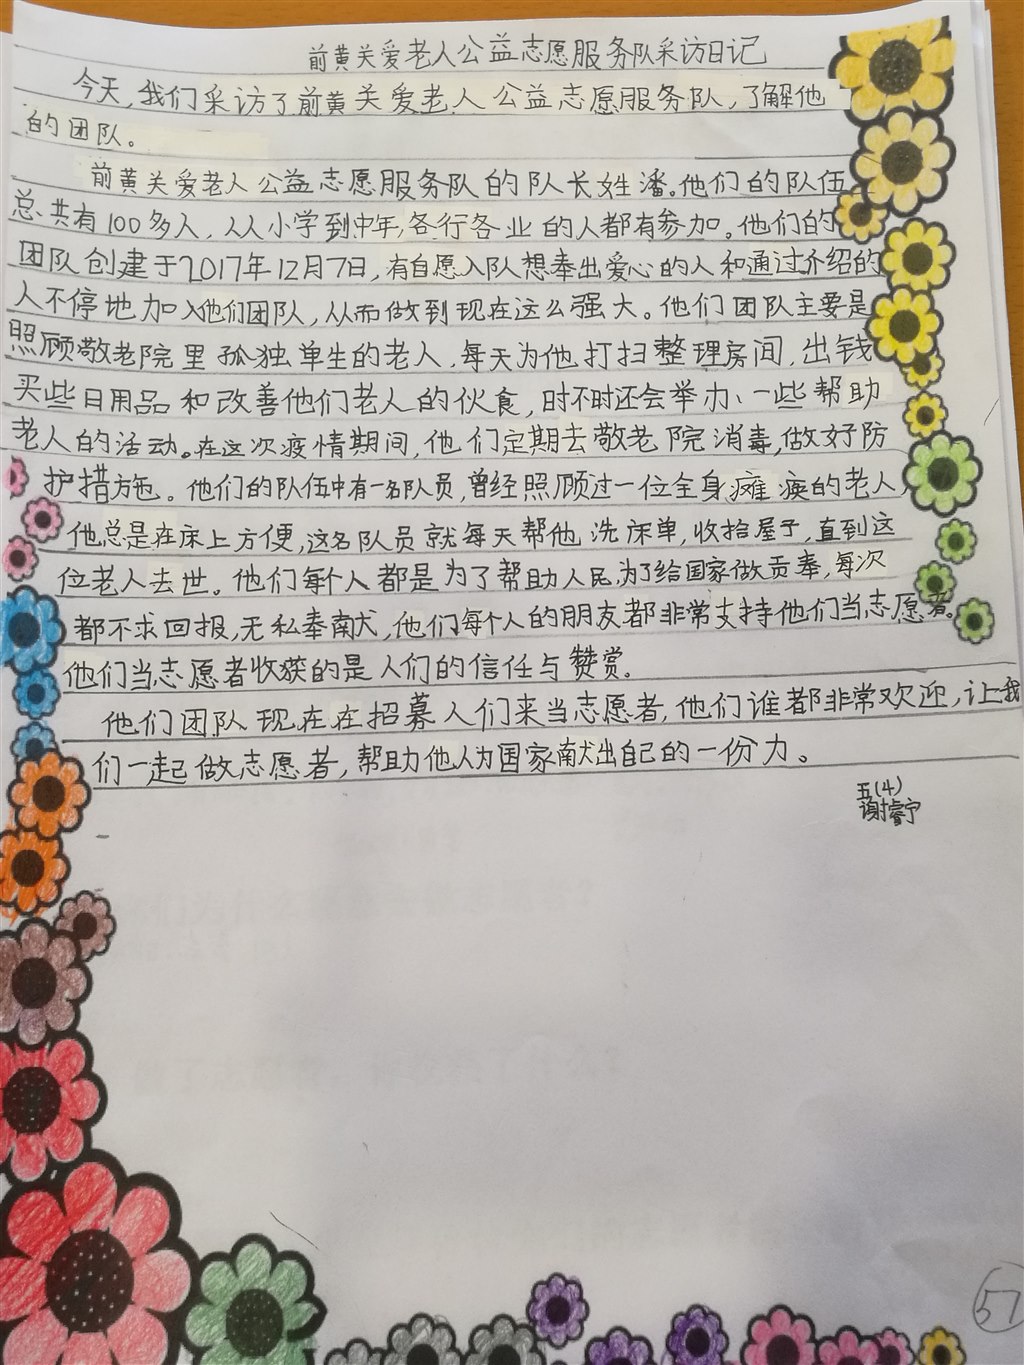 前黄关爱老人公益志愿服务队采访日记
今天,我们采访了前黄关爱老人公益志愿服务队,了解他
的团队。
前黄关爱老人公益志愿服务队的队长姓潘。他们的队伍
总共有100多人,从小学到中年,各行各业的人都有参加。他们的
团队创建于2017年12月7日,有自愿入队想奉出爱心的人和通过介绍的
人不停地加入他们团队,从而做到现在这么强大。他们团队主要是
照顾敬老院里孤独单生的老人,每天为他打扫整理房间,出钱
买些日用品和改善他们老人的伙食,时不时还会举办、一些帮助
老人的活动。在这次疫情期间,他们定期去敬老院消毒,做好防
护措施。他们的队伍中有一名队员,曾经照顾过一位全身瘫痪的老人,
他总是在床上方便,这名队员就每天帮他洗床单,收拾屋子,直到这
位老人去世。他们每个人都是为了帮助人民,为了给国家做贡奉,每次
都不求回报,无私奉献,他们每个人的朋友都非常支持他们当志愿者。
他们当志愿者收获的是人们的信任与赞赏。
他们团队现在在招募人们来当志愿者,他们谁都非常欢迎,让我
们一起做志愿者,帮助他人为国家献出自己的一份力。
五(4)
谢睿宁
57